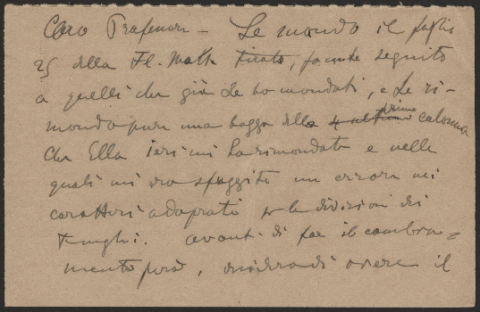 Caro Professore – Le mando il foglio
25 della Fl. Malt. tirato, facente seguito
a quelli che già Le ho mandati, e Le ri-
mando pure una bozza della prima colonna
che Ella ieri mi ha rimandato e nelle
quali mi era sfuggito un errore nei
caratteri adoprati per le divisioni dei
funghi. avanti di far il cambia-
mento però, desidererei avere il